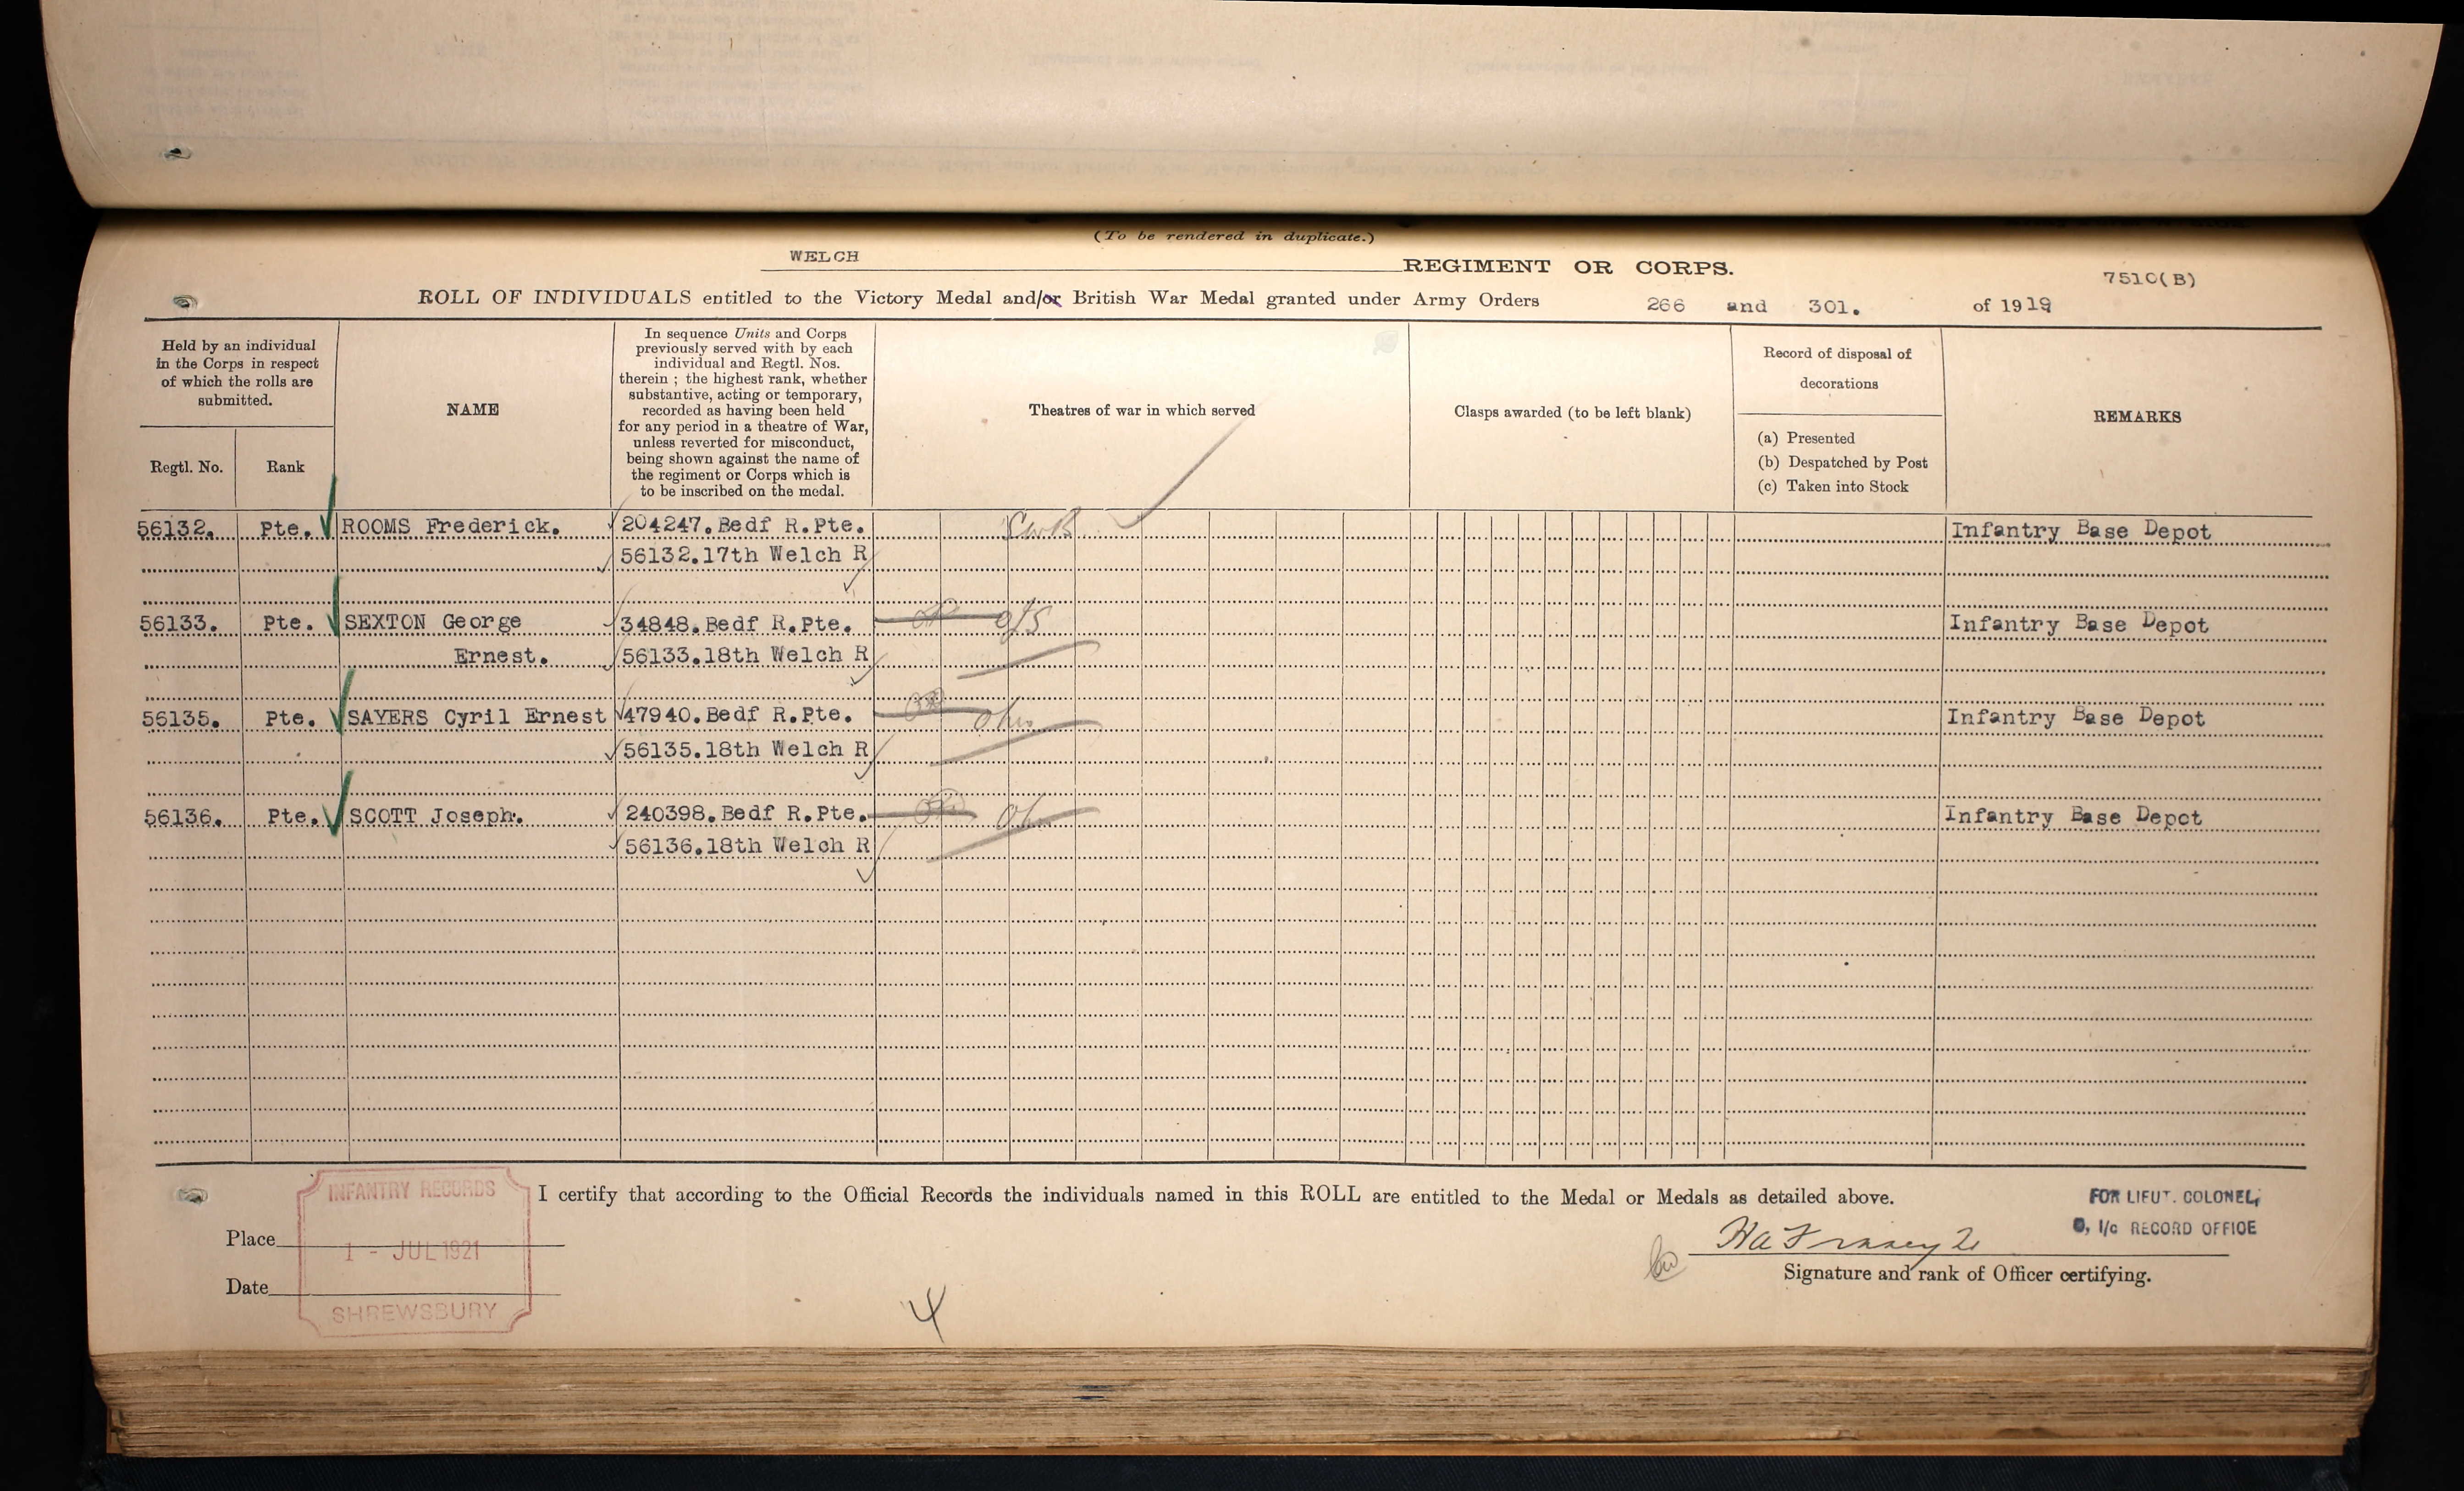 (To be rendered in duplicate.)
WELCH REGIMENT OR CORPS.
7510(B)
ROLL OF INDIVIDUALS entitled to the Victory Medal and/or British War Medal granted under Army Orders 266 and 301. of 1919
Held by an individual
in the Corps in respect
of which the rolls are
submitted.
Regtl. No.
Rank
NAME
In sequence Units and Corps
previously served with by each
individual and Regtl. Nos.
therein ; the highest rank, whether
substantive, acting or temporary,
recorded as having been held
for any period in a theatre of War,
unless reverted for misconduct,
being shown against the name of
the regiment or Corps which is
to be inscribed on the medal.
Theatres of war in which served
Clasps awarded (to be left blank)
Record of disposal of
decorations
(a) Presented
(b) Despatched by Post
(c) Taken into Stock
REMARKS
56132. Pte. ROOMS Frederick. 204247.Bedf R.Pte. Infantry Base Depot
56132.17th Welch R
56133. Pte. SEXTON George 34848.Bedf R.Pte. Infantry Base Depot
Ernest. 56133.18th Welch R
56135. Pte. SAYERS Cyril Ernest 47940.Bedf R.Pte. Infantry Base Depot
56135.18th Welch R
56136. Pte. SCOTT Joseph. 240398.Bedf R.Pte. Infantry Base Depot
56136.18th Welch R
I certify that according to the Official Records the individuals named in this ROLL are entitled to the Medal or Medals as detailed above.
INFANTRY RECORDS
1 - JUL 1921
SHREWSBURY
Place
Date
4
FOR LIEUT. COLONEL,
O, I/c RECORD OFFICE
Signature and rank of Officer certifying.